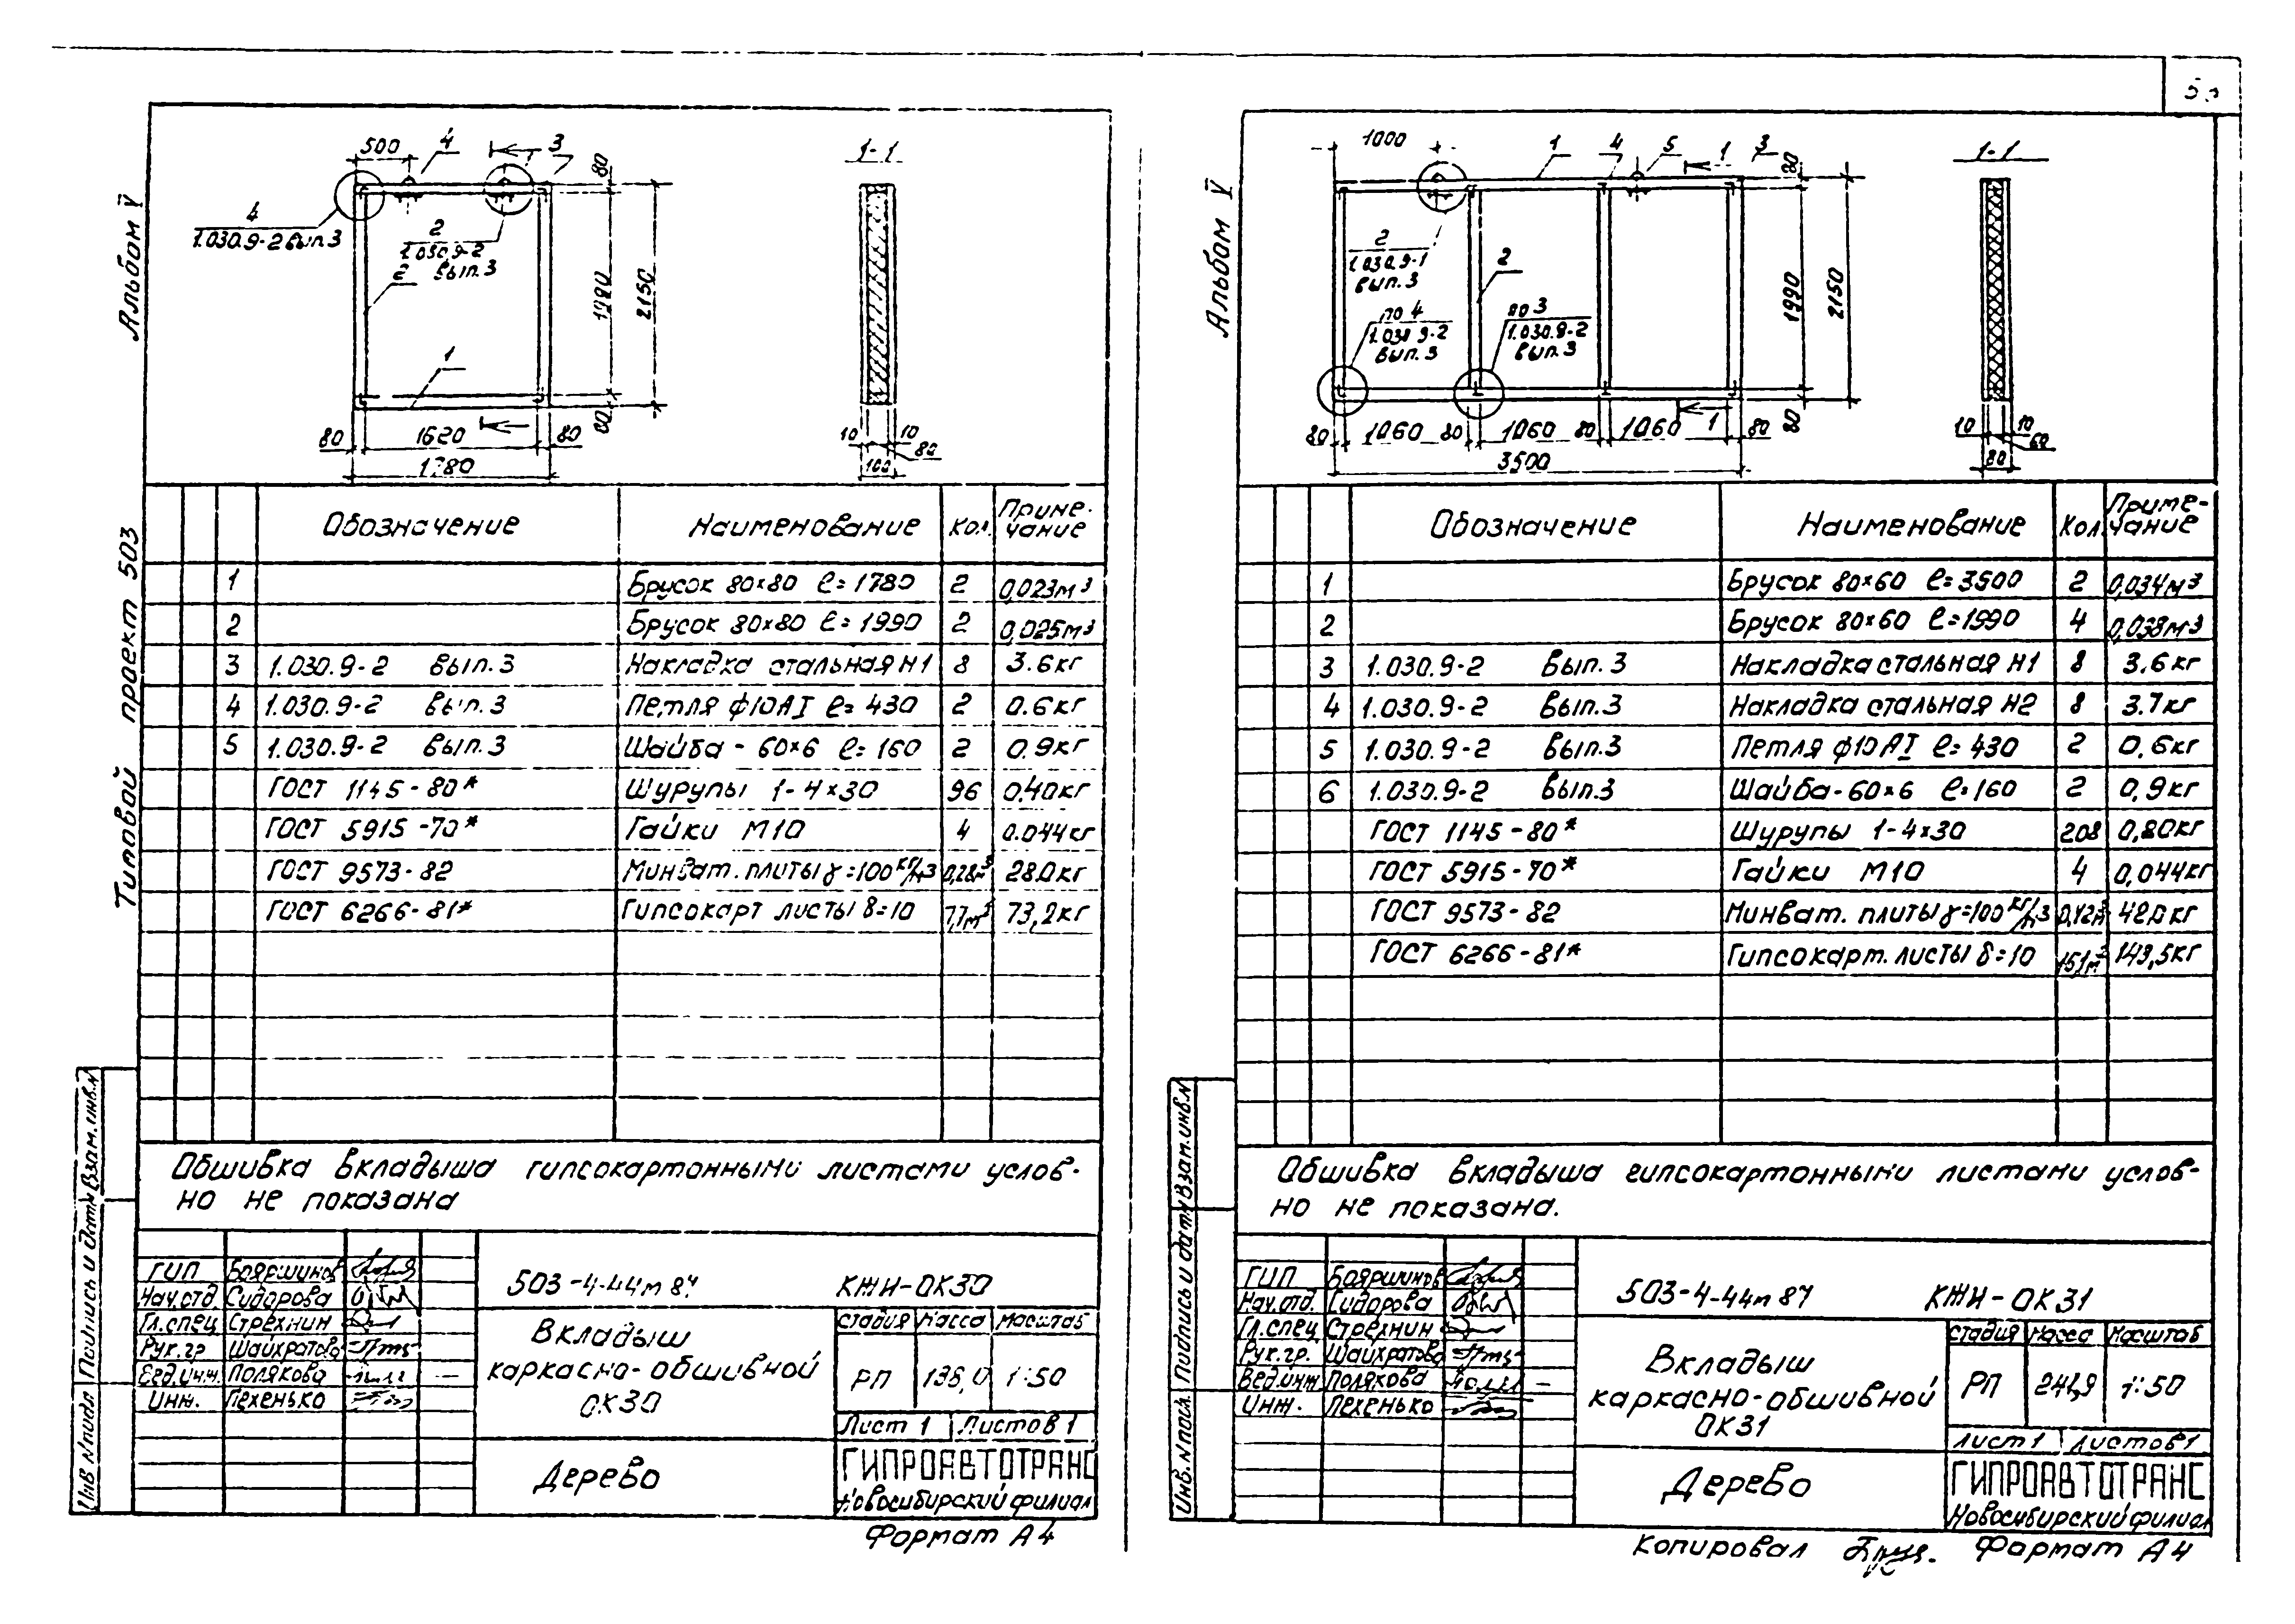 Альбом V
Типовой проект 503
500
4
3
1-1
80
4
1.030.9-2 вып.3
2
1.030.9-2
вып.3
2
1990
2150
1
80
80
1620
80
1780
10
10
80
100
Обозначение Наименование Кол. Приме-
чание
1 Брусок 80×80 ℓ=1780 2 0,023м³
2 Брусок 80×80 ℓ=1990 2 0,025м³
3 1.030.9-2 вып.3 Накладка стальная Н1 8 3.6кг
4 1.030.9-2 вып.3 Петля ф10АI ℓ=430 2 0.6кг
5 1.030.9-2 вып.3 Шайба-60×6 ℓ=160 2 0.9кг
ГОСТ 1145-80* Шурупы 1-4×30 96 0.40кг
ГОСТ 5915-70* Гайки М10 4 0.044кг
ГОСТ 9573-82 Минват. плиты γ=100 кг/м3 0,28м³ 28.0кг
ГОСТ 6266-81* Гипсокарт листы δ=10 7,7м² 73,2кг
Обшивка вкладыша гипсокартонными листами услов-
но не показана
ГИП Бояршинов
Нач.отд. Сидорова
Гл.спец Стрехнин
Рук.гр Шайхратова
Вед.инж. Полякова
Инж. Пехенько
503-4-44м 87 КЖИ-ОК30
Вкладыш
каркасно-обшивной
ОК30
Стадия Масса Масштаб
РП 136,0 1:50
Лист 1 Листов 1
Дерево
ГИПРОАВТОТРАНС
Новосибирский филиал
Формат А4
Инв.N подл Подпись и дата Взам.инв.N
Альбом V
1000
1
4
5
1
3
1-1
80
2
1.030.9-1
вып.3
2
по 4
1.030 9-2
вып.3
по 3
1.030.9-2
вып.3
1990
2150
80
1
80 1060 80 1060 80 1060 80
3500
10
10
60
80
Обозначение Наименование Кол. Приме-
чание
1 Брусок 80×60 ℓ=3500 2 0,034м³
2 Брусок 80×60 ℓ=1990 4 0,038м³
3 1.030.9-2 вып.3 Накладка стальная Н1 8 3.6кг
4 1.030.9-2 вып.3 Накладка стальная Н2 8 3.7кг
5 1.030.9-2 вып.3 Петля ф10АI ℓ=430 2 0.6кг
6 1.030.9-2 вып.3 Шайба-60×6 ℓ=160 2 0,9кг
ГОСТ 1145-80* Шурупы 1-4×30 208 0,80кг
ГОСТ 5915-70* Гайки М10 4 0,044кг
ГОСТ 9573-82 Минват. плиты γ=100 кг/м3 0,42м³ 42.0кг
ГОСТ 6266-81* Гипсокарт. листы δ=10 15,1м² 143,5кг
Обшивка вкладыша гипсокартонными листами услов-
но не показана.
ГИП Бояршинов
Нач.отд. Сидорова
Гл.спец Стрехнин
Рук.гр. Шайхратова
Вед.инж Полякова
Инж. Пехенько
503-4-44м 87 КЖИ-ОК31
Вкладыш
каркасно-обшивной
ОК31
Стадия Масса Масштаб
РП 241,9 1:50
Лист 1 Листов 1
Дерево
ГИПРОАВТОТРАНС
Новосибирский филиал
Копировал Формат А4
Инв.N подл. Подпись и дата Взам.инв.N